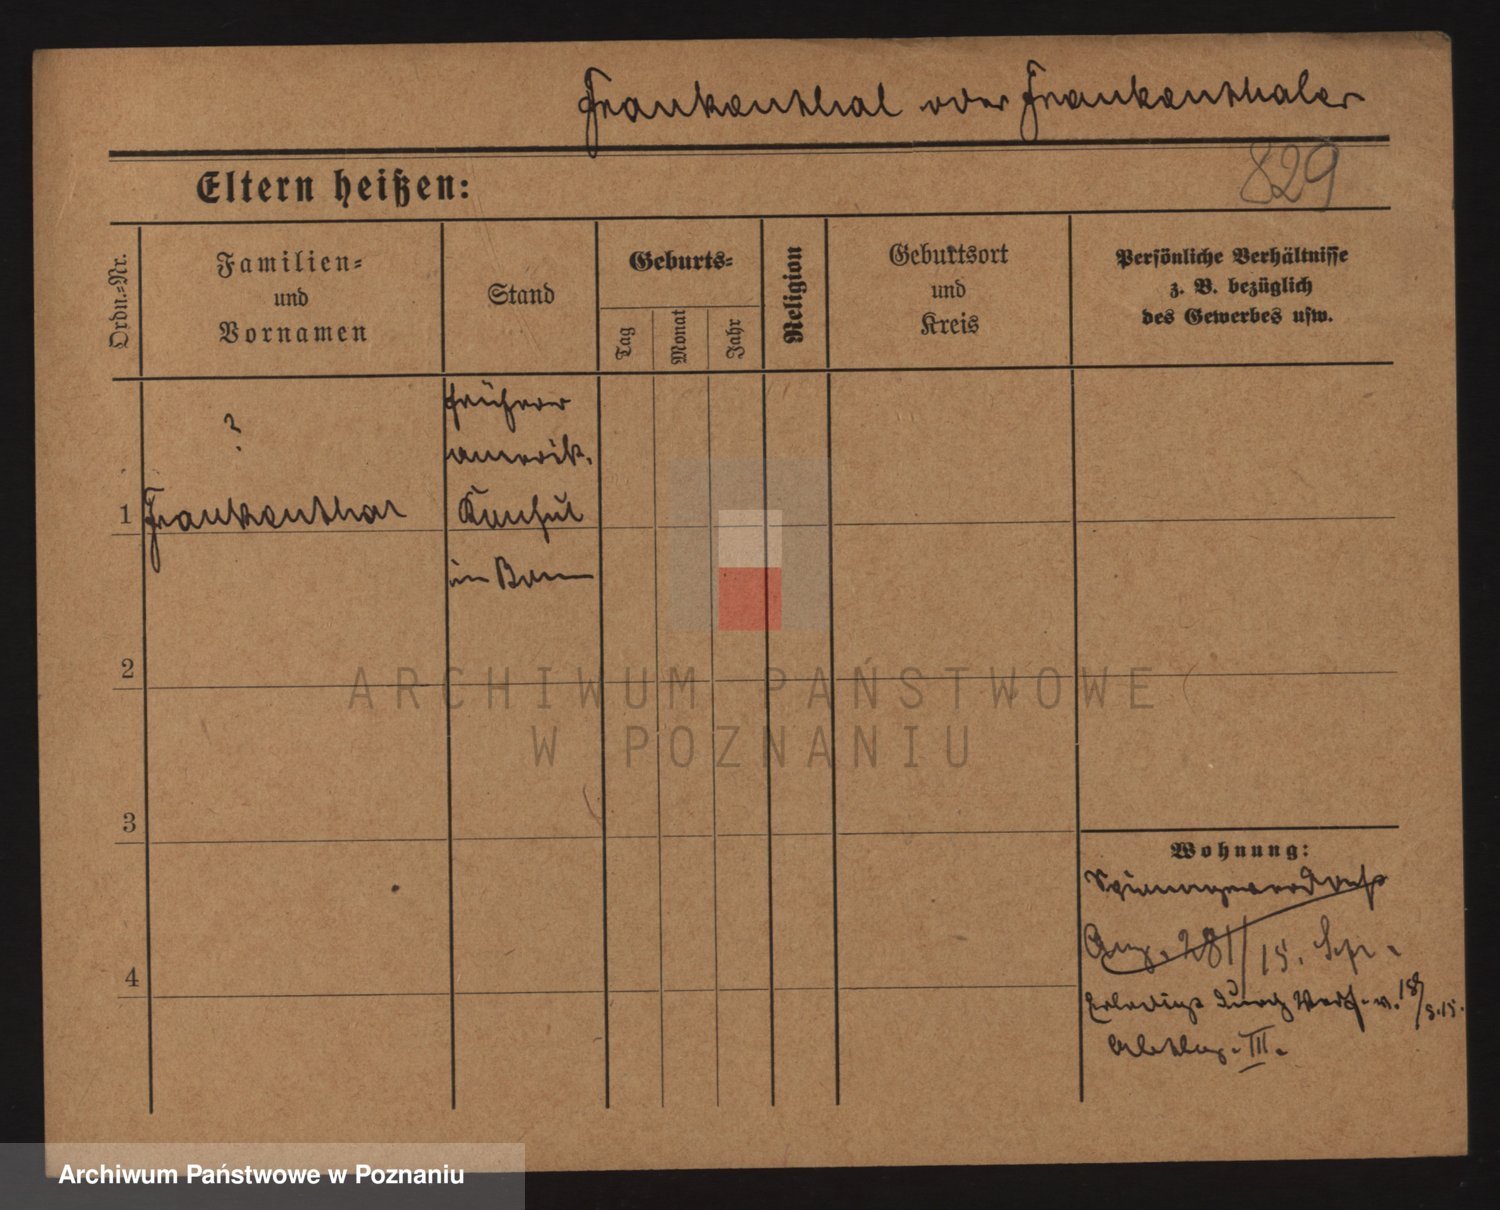 Frankenthal oder Frankenthaler
829
Eltern heißen:
Ordn.-Nr.
Familien-
und
Vornamen
Stand
Geburts-
Tag
Monat
Jahr
Religion
Geburtsort
und
Kreis
Persönliche Verhältnisse
z. B. bezüglich
des Gewerbes usw.
?
1 Frankenthal
früherer
amerik.
Konsul
in Bern
2
3
4
Wohnung:
Spionageverdacht
281/15.
Erledigt durch Verf. v. 18/3.15.
III.
ARCHIWUM PAŃSTWOWE
W POZNANIU
Archiwum Państwowe w Poznaniu